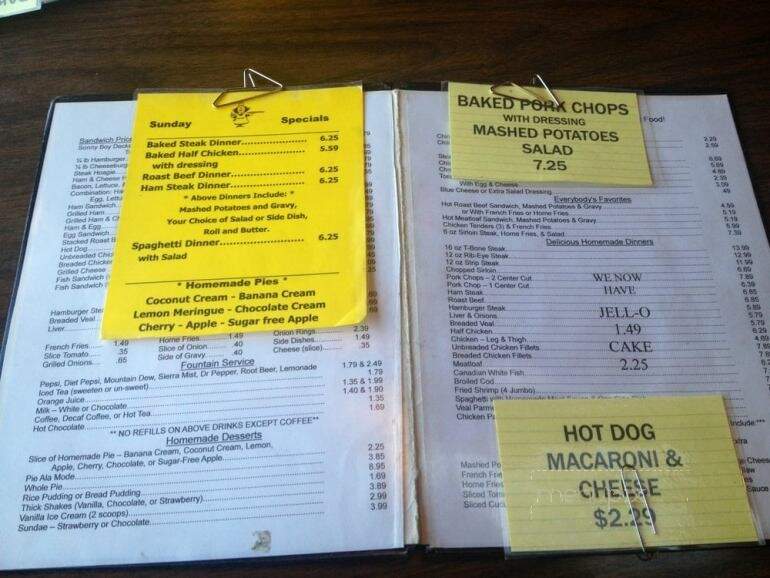 Sunday Specials
Baked Steak Dinner 6.25
Baked Half Chicken 5.59
with dressing
Roast Beef Dinner 6.25
Ham Steak Dinner 6.25
* Above Dinners Include: *
Mashed Potatoes and Gravy,
Your Choice of Salad or Side Dish,
Roll and Butter.
Spaghetti Dinner 6.25
with Salad
* Homemade Pies *
Coconut Cream - Banana Cream
Lemon Meringue - Chocolate Cream
Cherry - Apple - Sugar free Apple
Sandwich
Sonny Boy
¼ lb Hamburger
¼ lb Cheeseburger
Steak Hoagie
Ham & Cheese
Bacon, Lettuce,
Combination: Ham
Egg,
Ham Sandwich
Grilled Ham
Grilled Ham &
Ham & Egg
Egg Sandwich
Stacked Roast
Hot Dog
Unbreaded
Breaded Chicken
Grilled Cheese
Fish Sandwich
Fish Sandwich
Hamburger
Breaded Veal
Liver
French Fries 1.49 Home Fries 1.49 Onion Rings 2.39
Slice Tomato .35 Slice of Onion .40 Side Dishes 1.49
Grilled Onions .65 Side of Gravy .40 Cheese (slice) .35
Fountain Service
Pepsi, Diet Pepsi, Mountain Dew, Sierra Mist, Dr Pepper, Root Beer, Lemonade 1.79 & 2.49
Iced Tea (sweeten or un-sweet) 1.79
Orange Juice 1.35 & 1.99
Milk – White or Chocolate 1.40 & 1.90
Coffee, Decaf Coffee, or Hot Tea 1.35
Hot Chocolate 1.69
** NO REFILLS ON ABOVE DRINKS EXCEPT COFFEE**
Homemade Desserts
Slice of Homemade Pie – Banana Cream, Coconut Cream, Lemon,
Apple, Cherry, Chocolate, or Sugar-Free Apple 2.25
Pie Ala Mode 3.85
Whole Pie 8.95
Rice Pudding or Bread Pudding 1.69
Thick Shakes (Vanilla, Chocolate, or Strawberry) 3.89
Vanilla Ice Cream (2 scoops) 2.99
Sundae – Strawberry or Chocolate 3.99
BAKED PORK CHOPS
WITH DRESSING
MASHED POTATOES
SALAD
7.25
Food!
2.29
2.59
6.69
5.69
4.89
2.39
With Egg & Cheese
Blue Cheese or Extra Salad Dressing .49
Everybody's Favorites
Hot Roast Beef Sandwich, Mashed Potatoes & Gravy 4.59
or With French Fries or Home Fries 5.19
Hot Meatloaf Sandwich, Mashed Potatoes & Gravy 5.19
Chicken Tenders (3) & French Fries 6.99
6 oz Sirloin Steak, Home Fries, & Salad 7.39
Delicious Homemade Dinners
16 oz T-Bone Steak 13.99
12 oz Rib-Eye Steak 12.99
12 oz Strip Steak 11.99
Chopped Sirloin
Pork Chops – 2 Center Cut
Pork Chop – 1 Center Cut
Ham Steak
Roast Beef
Hamburger Steak
Liver & Onions
Breaded Veal
Half Chicken
Chicken – Leg & Thigh
Unbreaded Chicken Fillets
Breaded Chicken Fillets
Meatloaf
Canadian White Fish
Broiled Cod
Fried Shrimp (4 Jumbo)
Spaghetti
Veal
Chicken
WE NOW
HAVE
JELL-O
1.49
CAKE
2.25
Mashed
French
Home Fries
Sliced
Sliced
Sauce
HOT DOG
MACARONI &
CHEESE
$2.29